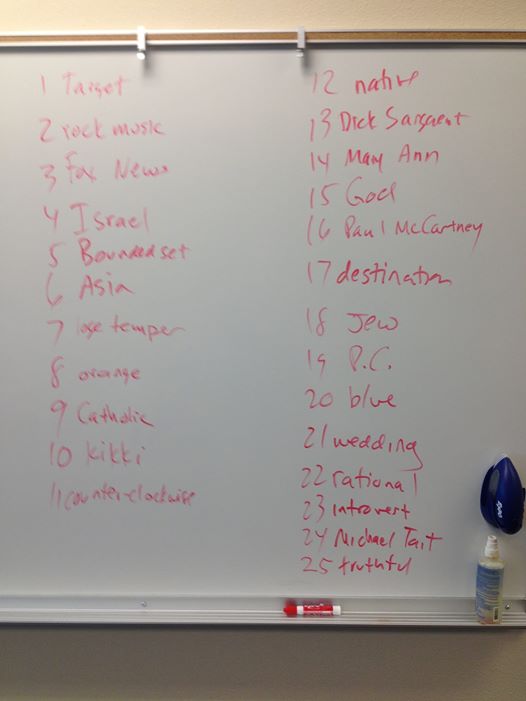 1 Target
2 rock music
3 Fox News
4 Israel
5 Bounded set
6 Asia
7 lose temper
8 orange
9 Catholic
10 kikki
11 counter-clockwise
12 native
13 Dick Sargent
14 Mary Ann
15 God
16 Paul McCartney
17 destination
18 Jew
19 P.C.
20 blue
21 wedding
22 rational
23 introvert
24 Michael Tait
25 truthful
expo